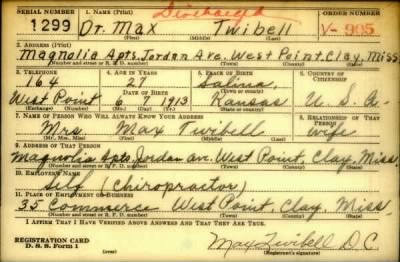 SERIAL NUMBER 1. NAME (Print) Discharged ORDER NUMBER
1299 Dr. Max Twibell V-905
(First) (Middle) (Last)
2. ADDRESS (Print)
Magnolia Apts, Jordan Ave. West Point, Clay, Miss.
(Number and street or R. F. D. number) (Town) (County) (State)
3. TELEPHONE 4. AGE IN YEARS 5. PLACE OF BIRTH 6. COUNTRY OF CITIZENSHIP
164 27 Salina,
DATE OF BIRTH (Town or county)
West Point 6 1913 Kansas U. S. A.
(Exchange) (Number) (Mo.) (Day) (Yr.) (State or country)
7. NAME OF PERSON WHO WILL ALWAYS KNOW YOUR ADDRESS 8. RELATIONSHIP OF THAT PERSON
Mrs. Max Twibell Wife
(Mr., Mrs., Miss) (First) (Middle) (Last)
9. ADDRESS OF THAT PERSON
Magnolia Apts, Jordan av. West Point, Clay, Miss.
(Number and street or R. F. D. number) (Town) (County) (State)
10. EMPLOYER'S NAME
Self (Chiropractor)
11. PLACE OF EMPLOYMENT OR BUSINESS
35 Commerce West Point, Clay, Miss.
(Number and street or R. F. D. number) (Town) (County) (State)
I AFFIRM THAT I HAVE VERIFIED ABOVE ANSWERS AND THAT THEY ARE TRUE.
REGISTRATION CARD
D. S. S. Form 1 Max Twibell D.C.
(Registrant's signature)